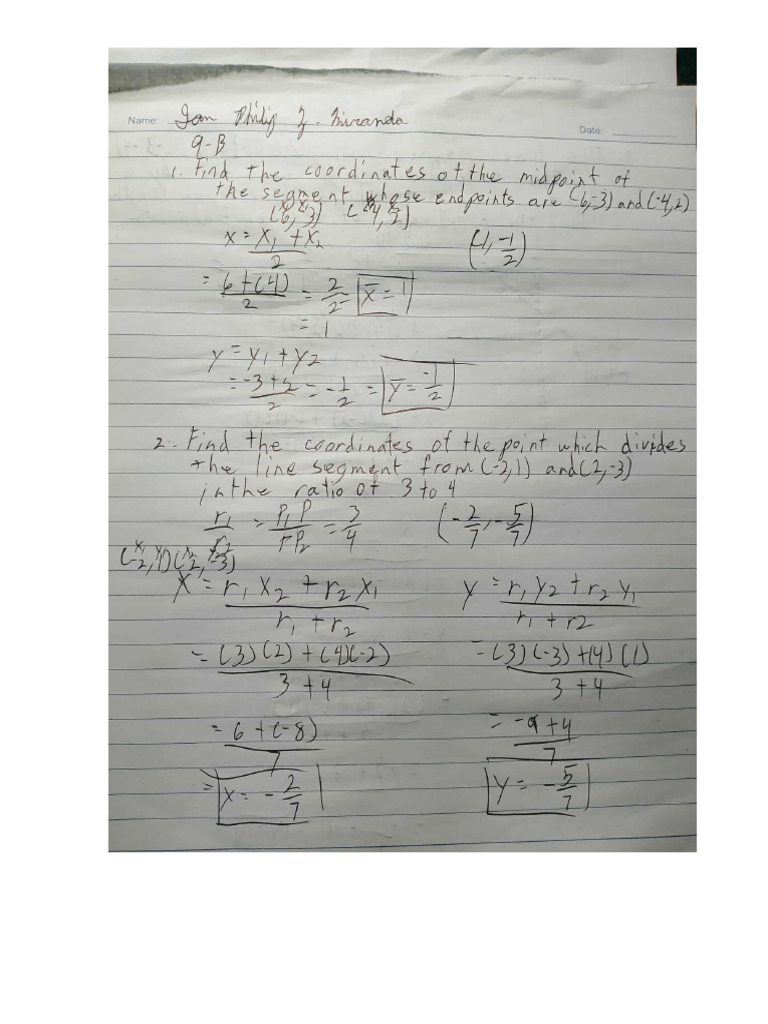 Name: Ian Philip Z. Miranda
Date:
9-B
1. Find the coordinates of the midpoint of
the segment whose endpoints are (6,-3) and (-4,2)
(6,-3) (-4,2)
x = x₁ + x₂ / 2
(1, -1/2)
= 6+(4) / 2 = 2/2 x̄ = 1
= 1
y = y₁ + y₂
= -3+2 / 2 = -1/2 = ȳ = -1/2
2. Find the coordinates of the point which divides
the line segment from (-2,1) and (2,-3)
in the ratio of 3 to 4
r₁/r₂ = P₁P/PP₂ = 3/4 (-2/7, -5/7)
(-2,1) (2,-3)
x = r₁x₂ + r₂x₁ / r₁ + r₂ y = r₁y₂ + r₂y₁ / r₁ + r₂
= (3)(2) + (4)(-2) / 3 + 4 = (3)(-3) + (4)(1) / 3 + 4
= 6 + (-8) / 7 = -9 + 4 / 7
= x = -2/7 y = -5/7